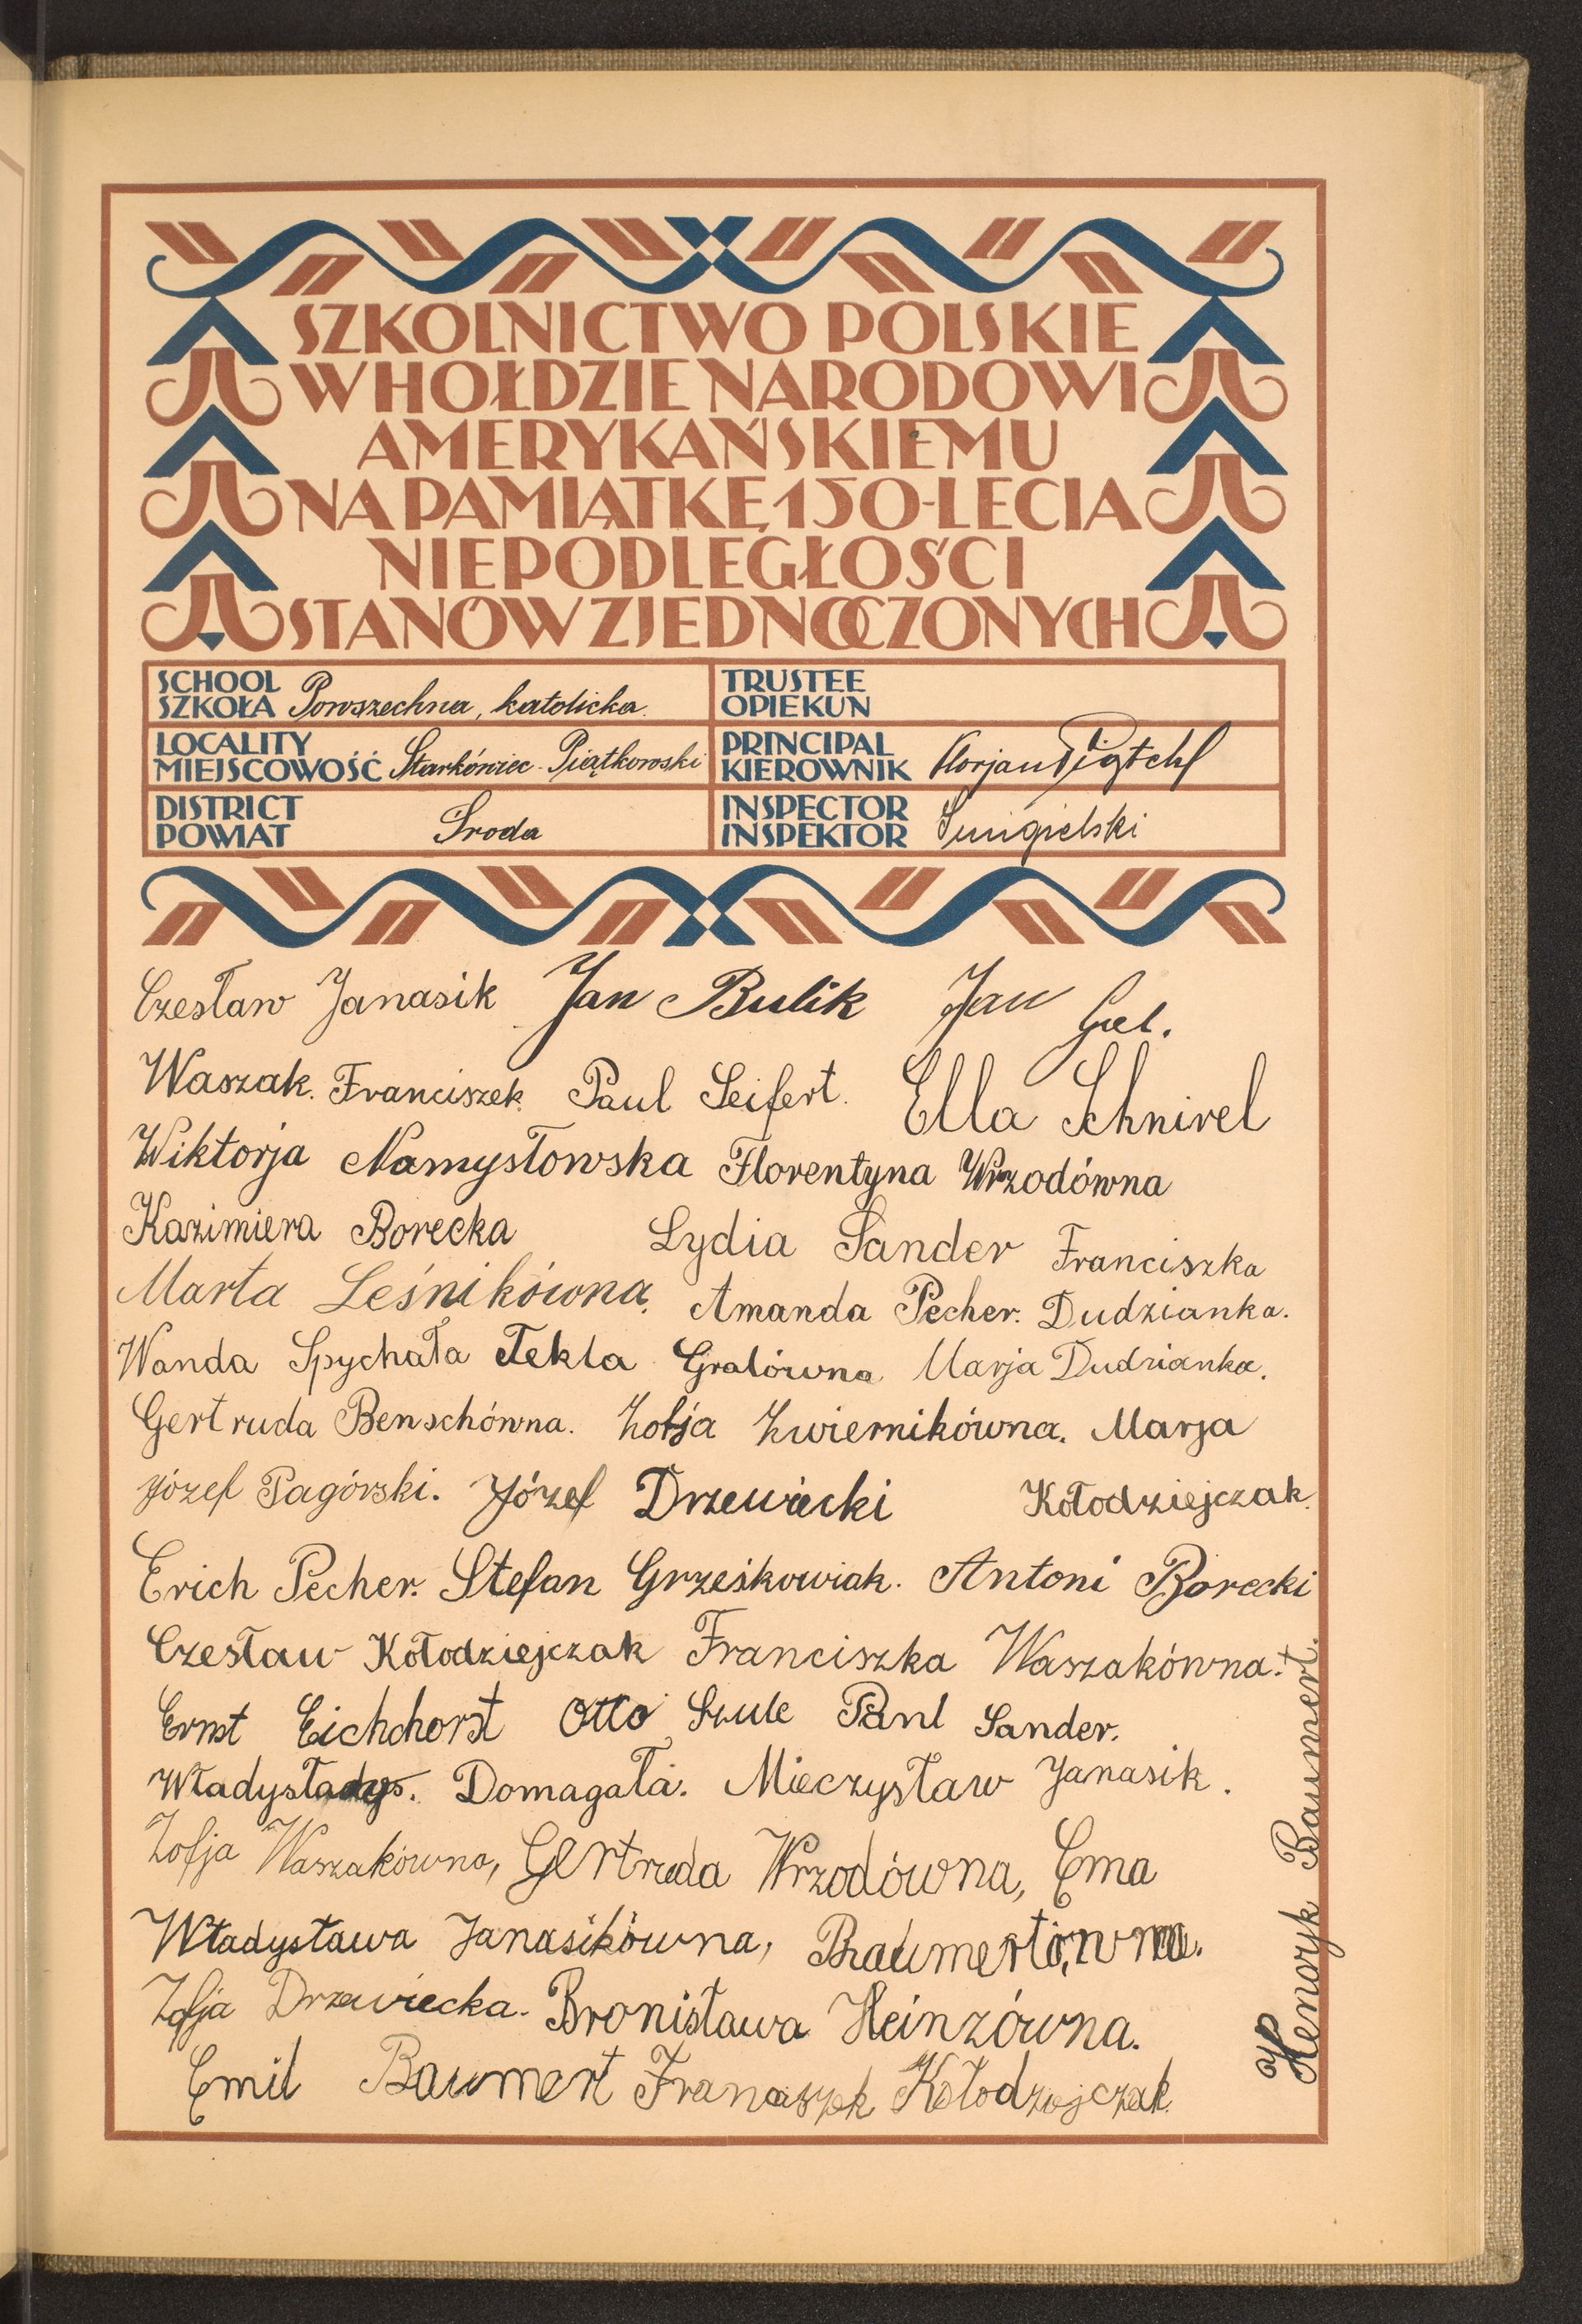 SZKOLNICTWO POLSKIE
W HOŁDZIE NARODOWI
AMERYKAŃSKIEMU
NA PAMIĄTKĘ 150-LECIA
NIEPODLEGŁOŚCI
STANÓW ZJEDNOCZONYCH
SCHOOL
SZKOŁA Powszechna, katolicka.
TRUSTEE
OPIEKUN
LOCALITY
MIEJSCOWOŚĆ Starkówiec-Piątkowski
PRINCIPAL
KIEROWNIK Florjan
DISTRICT
POWIAT Środa
INSPECTOR
INSPEKTOR
Czesław Janasik Jan Bulik Jan Gel.
Waszak. Franciszek. Paul Seifert. Ella Schnirel
Wiktorja Namysłowska Florentyna Wrzodówna
Kazimiera Borecka Lydia Sander Franciszka
Marta Leśnikówna. Amanda Pecher. Dudzianka.
Wanda Spychała Tekla Gralówna Marja Dudzianka.
Gertruda Benschówna. Zofja Zwiernikówna. Marja
Józef Pagórski. Józef Drzewiecki Kołodziejczak.
Erich Pecher. Stefan Grześkowiak. Antoni Borecki
Czesław Kołodziejczak Franciszka Waszakówna.
Ernst Eichchorst Otto Szule Paul Sander.
Domagała. Mieczysław Janasik.
Zofja Waszakówna, Gertruda Wrzodówna, Ema
Władysława Janasikówna, Baumertówna.
Zofja Drzewiecka. Bronisława Heinzówna.
Emil Baumert Franciszek Kołodziejczak.
Henaryk Baumert.